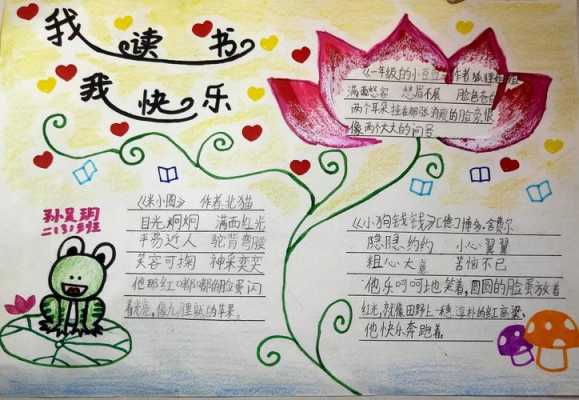 我读书
我快乐
《一年级的小豆豆》作者狐狸姐姐
满面怒容 怒眉不展 脸色苍白
两个耳朵挂在那张消瘦的脸旁很
像两个大大的问号
孙昊玥
二(3)班
《米小圈》 作者北猫
目光炯炯 满面红光
平易近人 驼背弯腰
笑容可掬 神采奕奕
他那红嘟嘟的脸蛋闪
着光亮,像九月里熟的苹果。
《小狗钱钱》〔德〕博多.舍费尔
隐隐约约 小心翼翼
粗心大意 苦恼不已
他乐呵呵地笑着,圆圆的脸蛋放着
红光,就像田野上一穗淳朴的红高粱。
他快乐奔跑着。